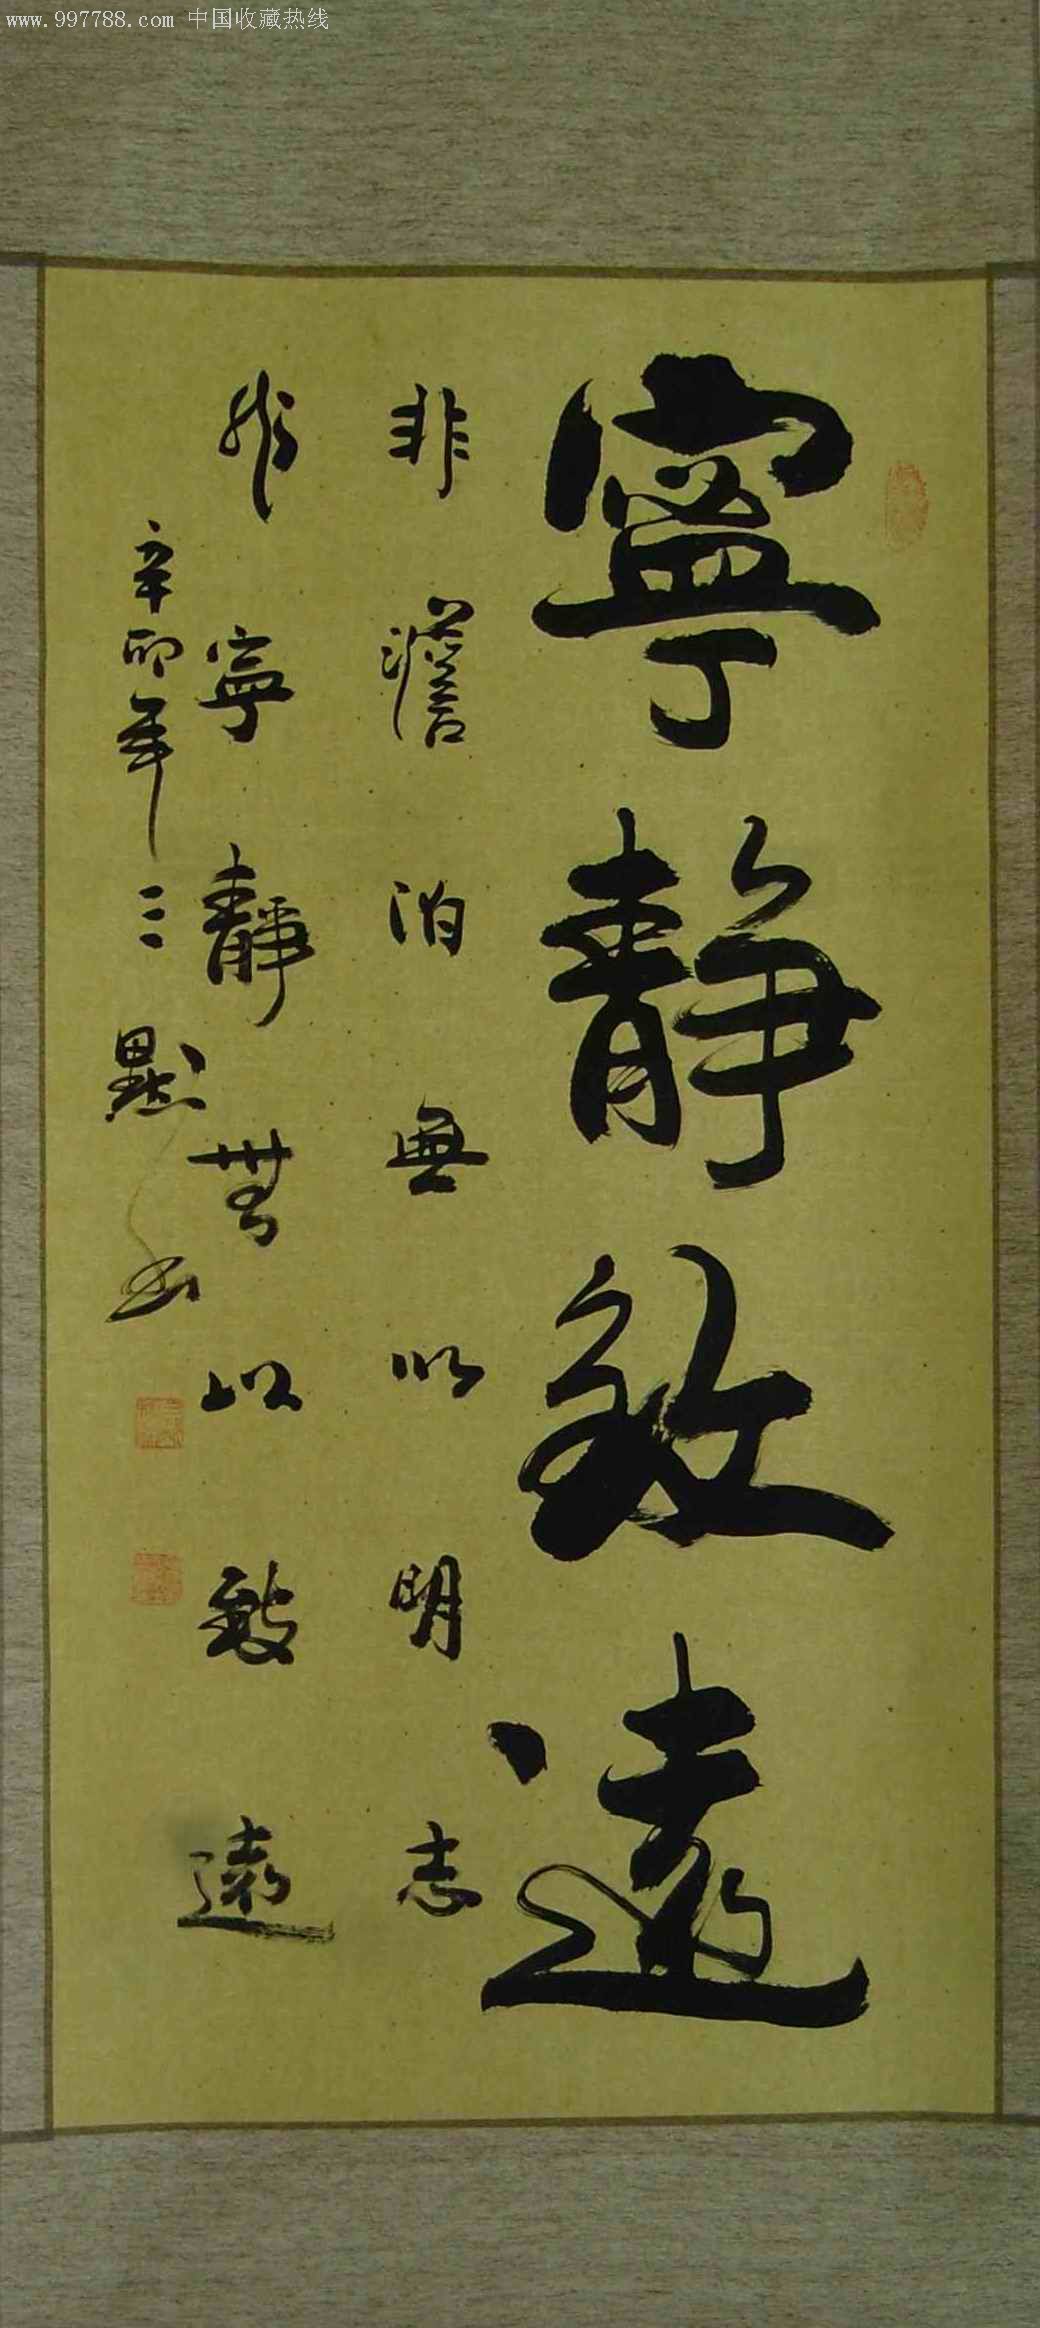 www.997788.com 中国收藏热线
寧静致遠
非澹泊無以明志
非寧靜無以致遠
辛卯年三默書